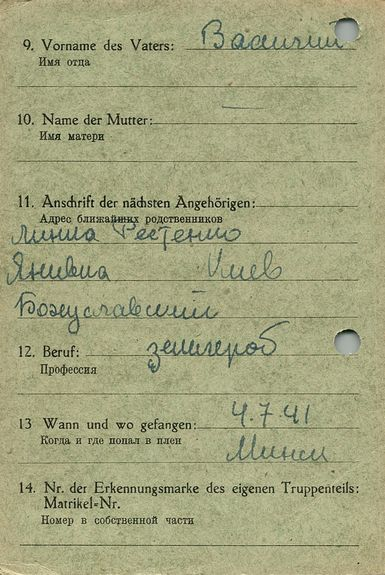 9. Vorname des Vaters: Василий
Имя отца
10. Name der Mutter:
Имя матери
11. Anschrift der nächsten Angehörigen:
Адрес ближайших родственников
Киев
12. Beruf: землероб
Профессия
13 Wann und wo gefangen: 4.7.41
Когда и где попал в плен
Минск
14. Nr. der Erkennungsmarke des eigenen Truppenteils:
Matrikel=Nr.
Номер в собственной части